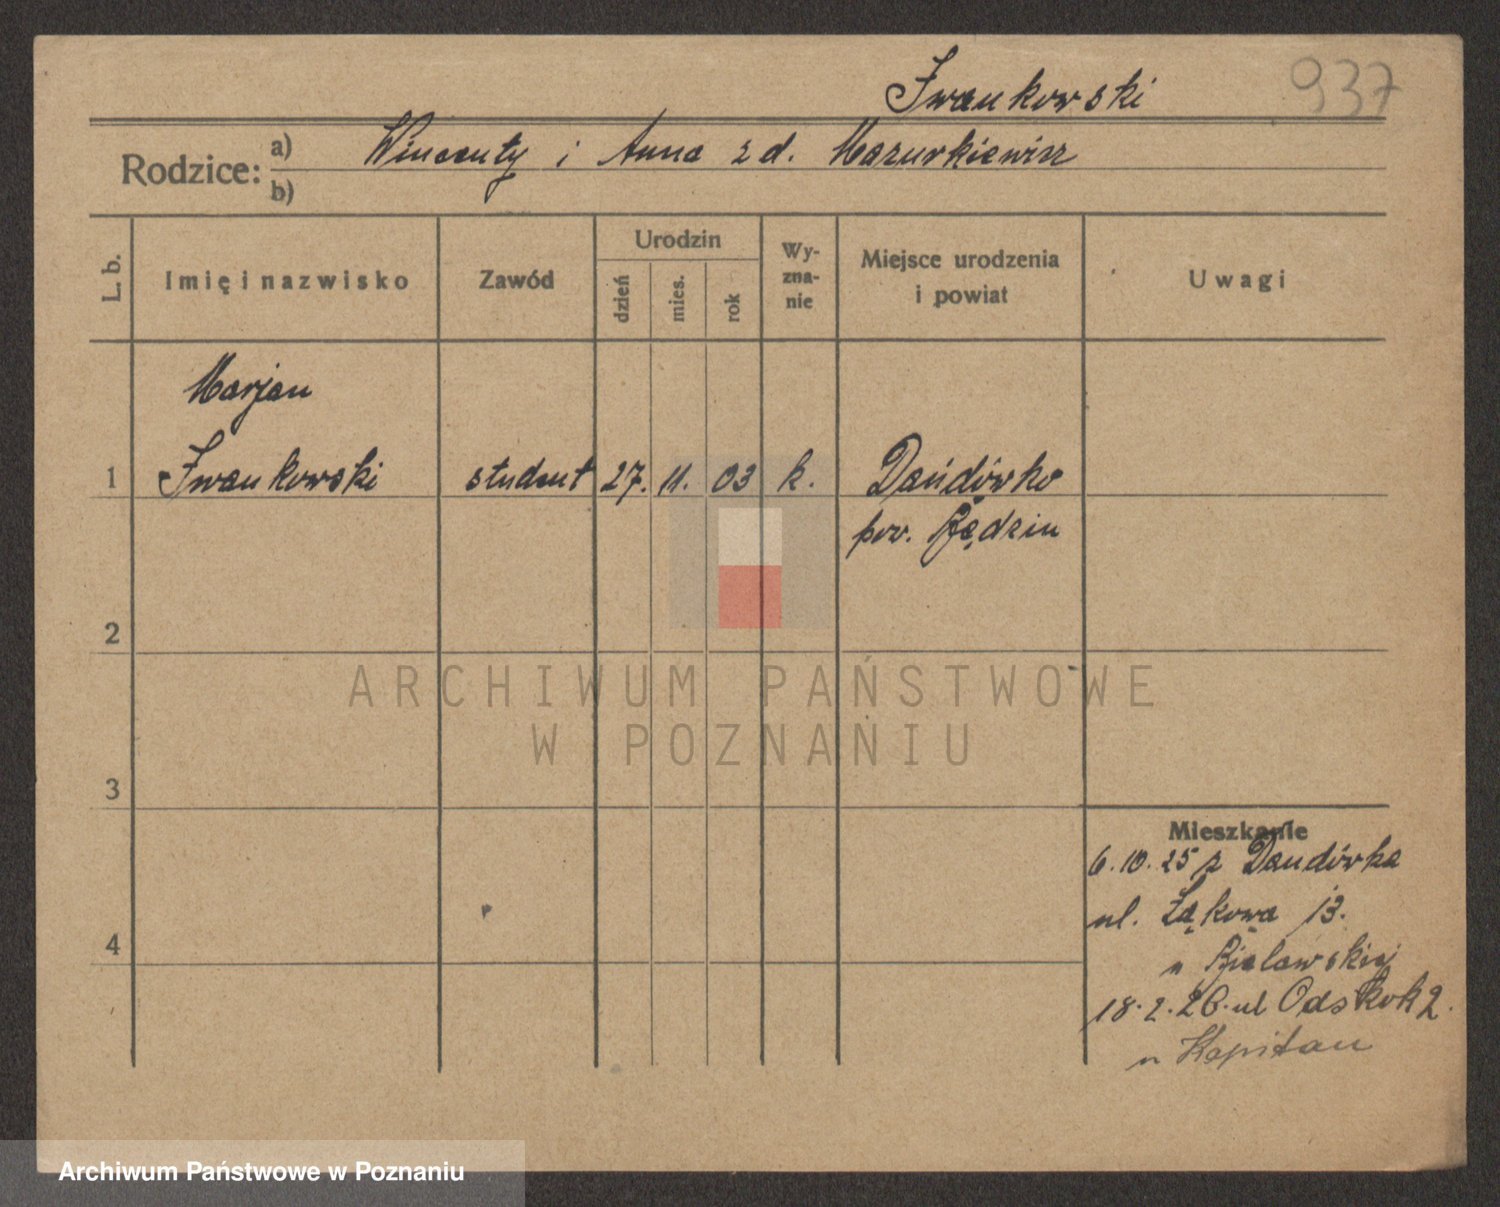 Iwankowski
937
Rodzice:
a) Wincenty i Anna z d. Mazurkiewicz
b)
L. b.
Imię i nazwisko
Zawód
Urodzin
dzień
mies.
rok
Wy-
zna-
nie
Miejsce urodzenia
i powiat
Uwagi
Marjan
1 Iwankowski student 27. 11. 03 k. Dańdówko
pow. Będzin
2
3
4
Mieszkanie
6.10.25 z Dandówka
ul. Łąkowa 13.
u Bielawskiej
18.2.26. ul Odskok 2.
u Kapitan
ARCHIWUM PAŃSTWOWE
W POZNANIU
Archiwum Państwowe w Poznaniu